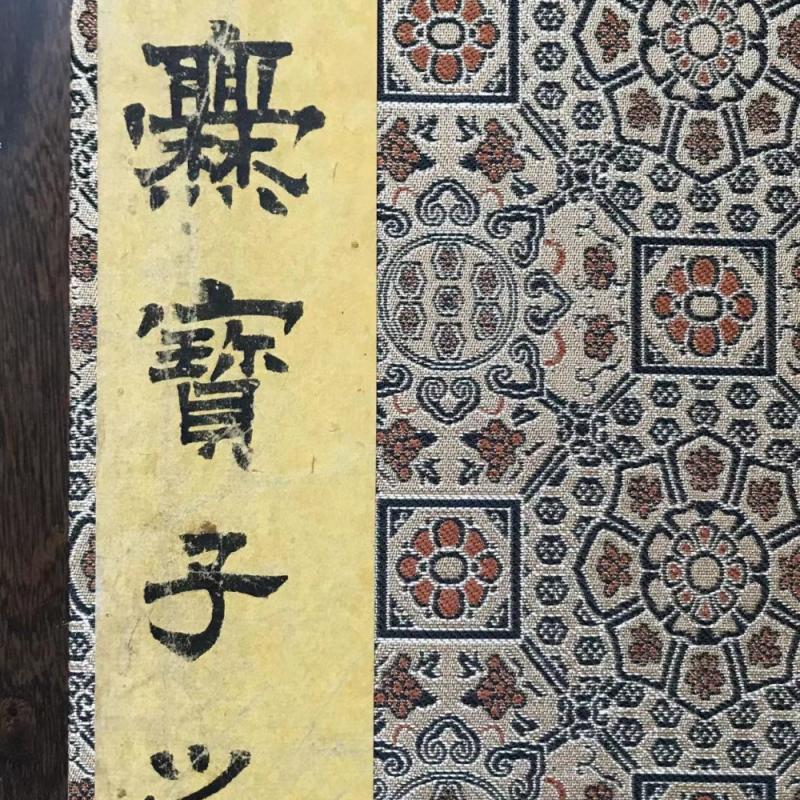 爨寶子